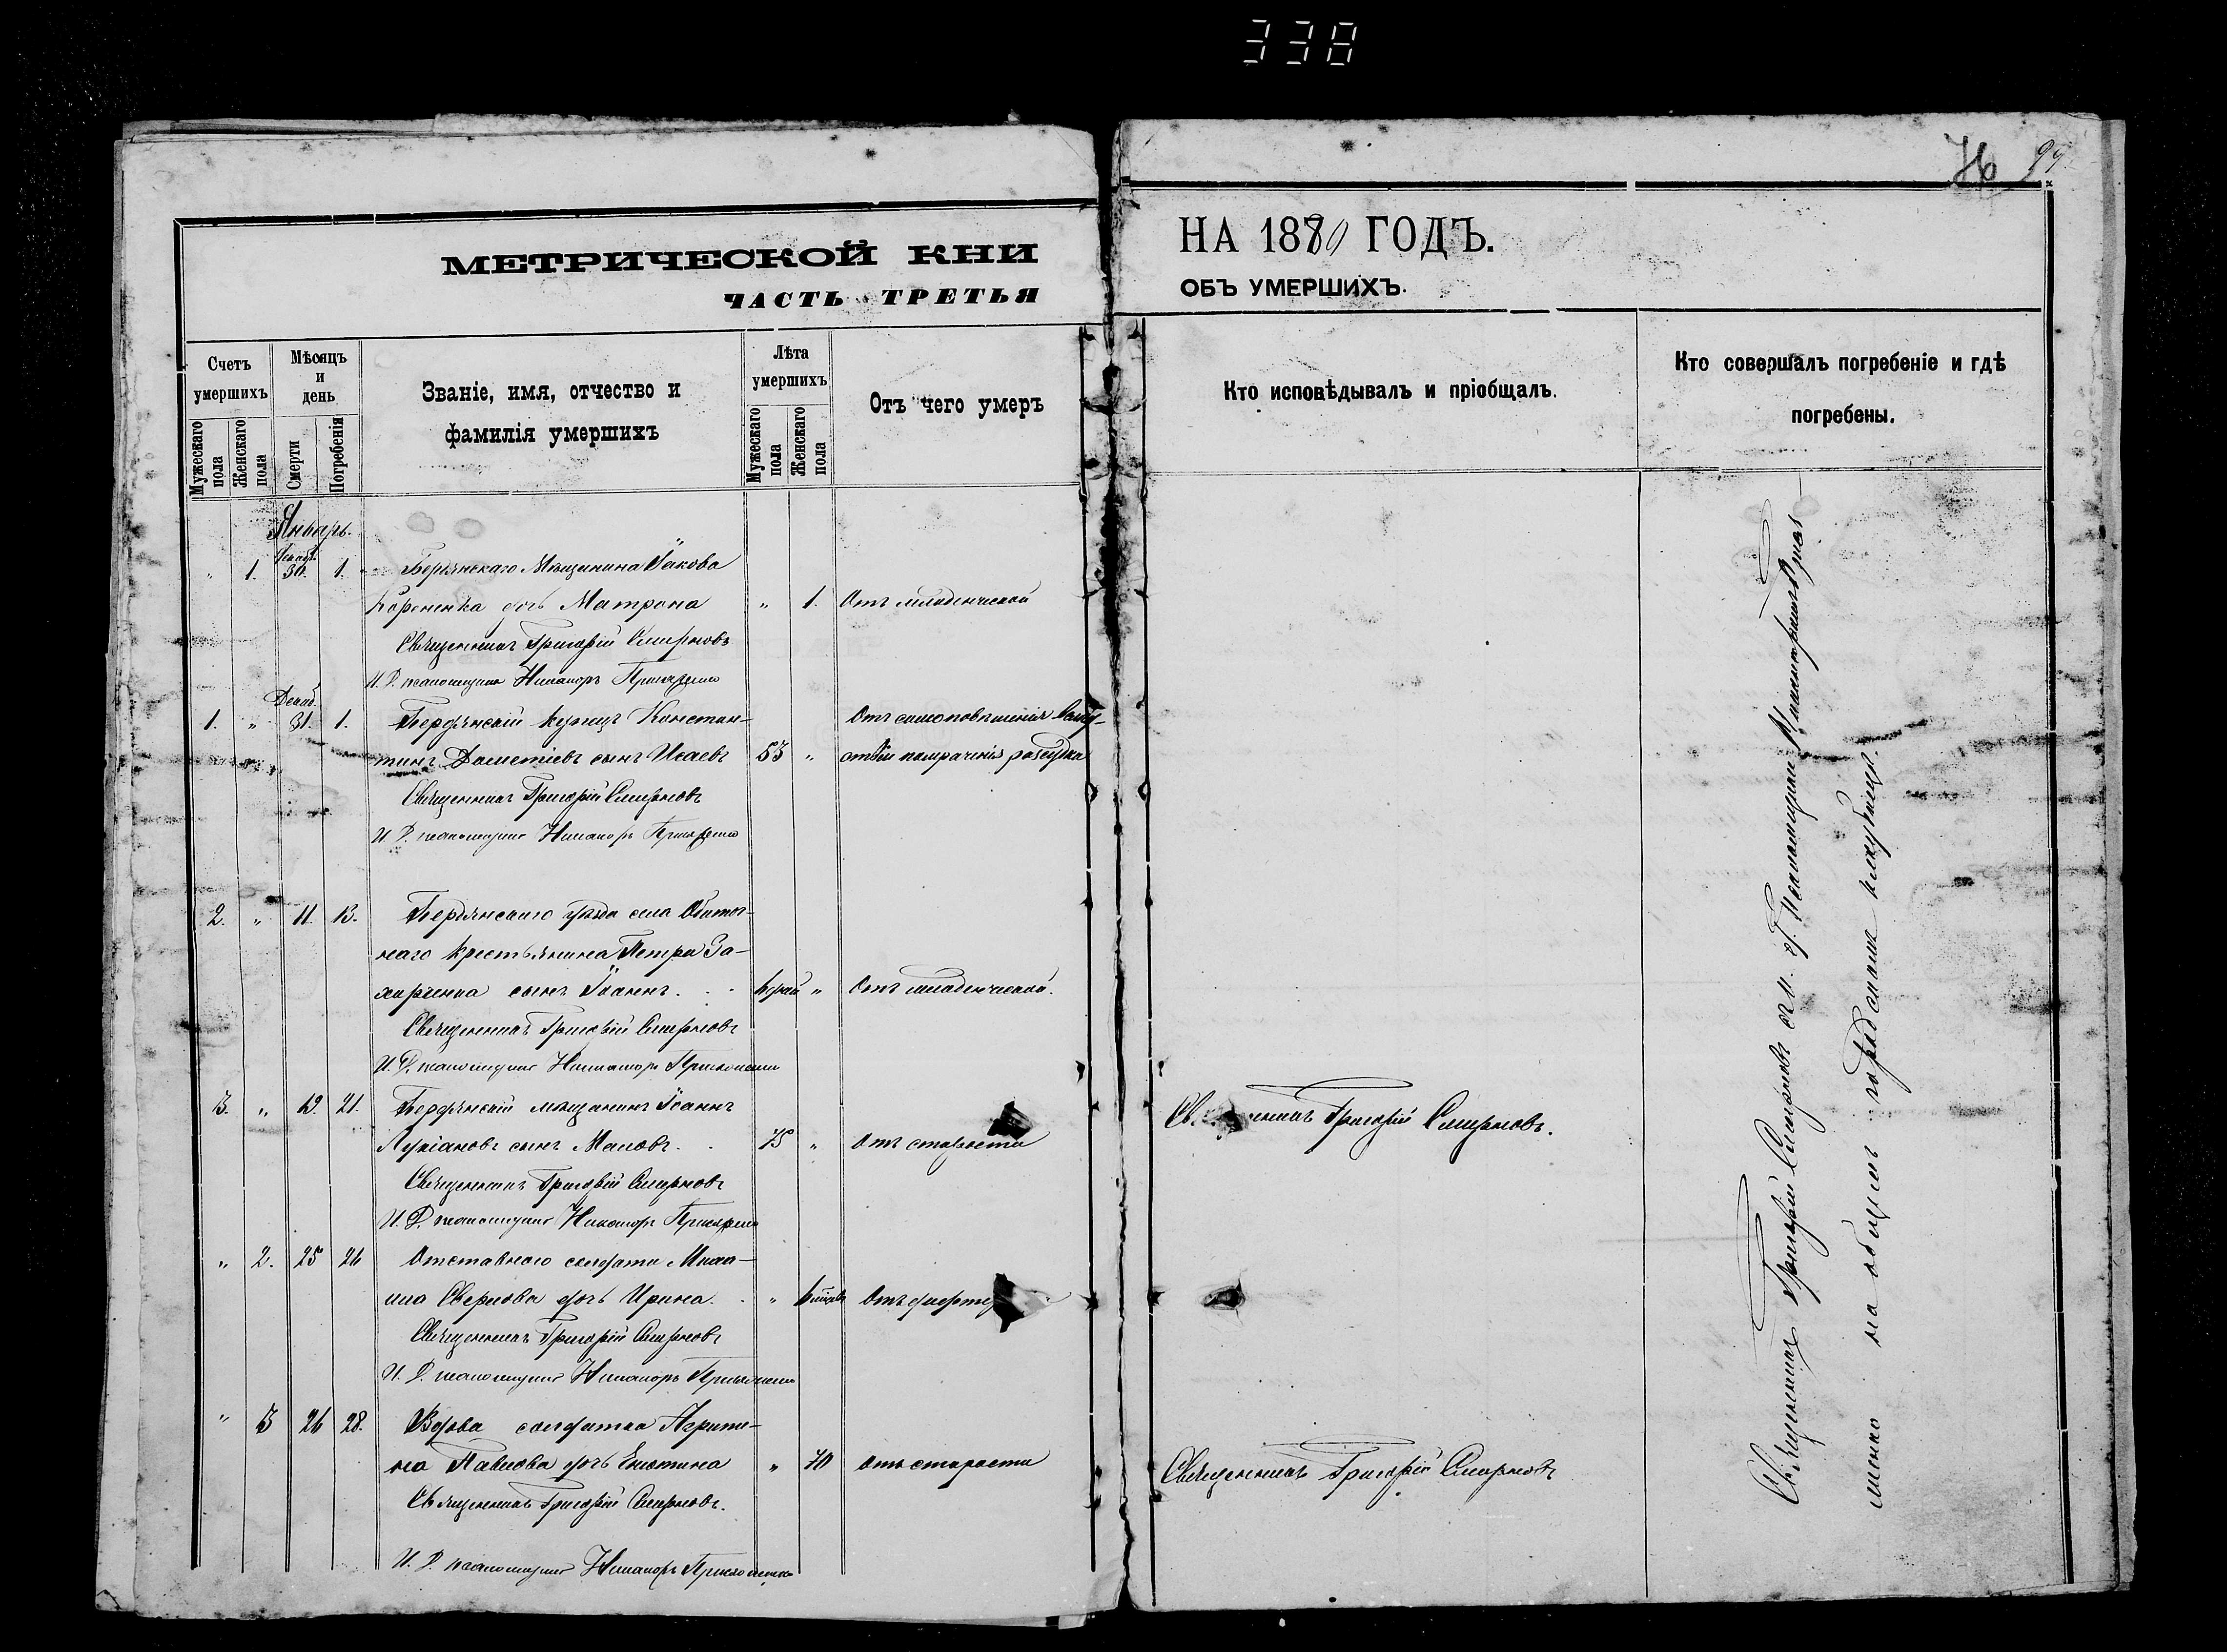 338
76 99
МЕТРИЧЕСКОЙ КНИ
НА 1880 ГОДЪ.
ЧАСТЬ ТРЕТЬЯ
ОБЪ УМЕРШИХЪ.
Счетъ умершихъ
Мужескаго пола
Женскаго пола
Мѣсяцъ и день
Смерти
Погребенія
Званіе, имя, отчество и
фамилія умершихъ
Лѣта умершихъ
Мужескаго пола
Женскаго пола
Отъ чего умеръ
Кто исповѣдывалъ и пріобщалъ.
Кто совершалъ погребеніе и гдѣ
погребены.
Январь.
Декаб.
" 1. 30. 1. Бердянскаго Мѣщанина Іакова
дочь Матрона " 1. Отъ младенческой
Священникъ Григорій Смирновъ
И. Д. псаломщика Никаноръ
Декаб.
1. " 31. 1. Бердянскій купецъ Констан-
тинъ Дометіевъ сынъ Исаевъ 53 "
Отъ самоповѣшенія
помраченія разсудка
Священникъ Григорій Смирновъ
И. Д. псаломщика Никаноръ
2. " 11. 13. Бердянскаго уѣзда села Обиточ-
наго крестьянина Петра За-
харченка сынъ Іоаннъ. 6 дней " Отъ младенческой.
Священникъ Григорій Смирновъ
И. Д. псаломщика Никаноръ
3. " 19. 21. Бердянскій мѣщанинъ Іоаннъ
Лукіановъ сынъ Маловъ. 75 " Отъ старости
Священникъ Григорій Смирновъ.
Священникъ Григорій Смирновъ
И. Д. псаломщика Никаноръ
" 2. 25 26 Отставнаго солдата
дочь Ирина. "
Священникъ Григорій Смирновъ
И. Д. псаломщика Никаноръ
" 3 26 28. Вдова солдатка Агрипи-
на Павлова дочь " 70 Отъ старости
Священникъ Григорій Смирновъ
Священникъ Григорій Смирновъ.
И. Д. псаломщика Никаноръ
Священникъ Григорій Смирновъ съ и. д. псаломщика
на общемъ городскомъ кладбищѣ.